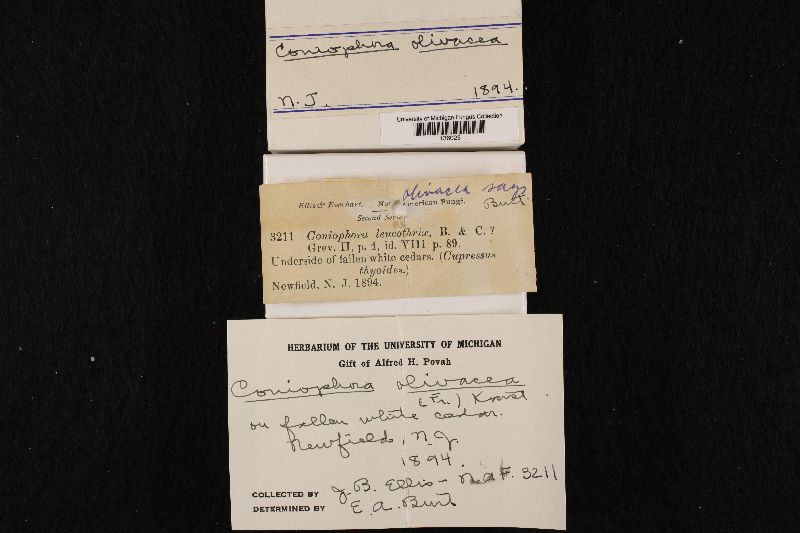 Coniophora olivacea
N. J. 1894.
University of Michigan Fungus Collection
olivacea says
Burt.
Ellis & Everhart, North American Fungi.
Second Series
3211 Coniophora leucothrix, B. & C. ?
Grev. II, p. 4, id. VIII p. 89.
Underside of fallen white cedars. (Cupressus
thyoides.)
Newfield, N. J. 1894.
HERBARIUM OF THE UNIVERSITY OF MICHIGAN
Gift of Alfred H. Povah
Coniophora olivacea
(Fr.) Karst.
on fallen white cedar.
Newfield, N.J.
1894.
COLLECTED BY J. B. Ellis - N.A.F. 3211
DETERMINED BY E. A. Burt